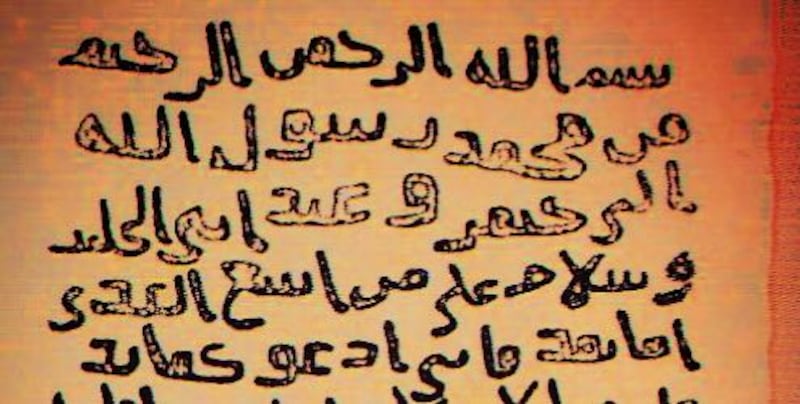 بسم الله الرحمن الرحيم
من محمد رسول الله
الى جيفر و عبد ابني الجلند
و سلام على من اتبع الهدى
اما بعد فاني ادعو كما بد